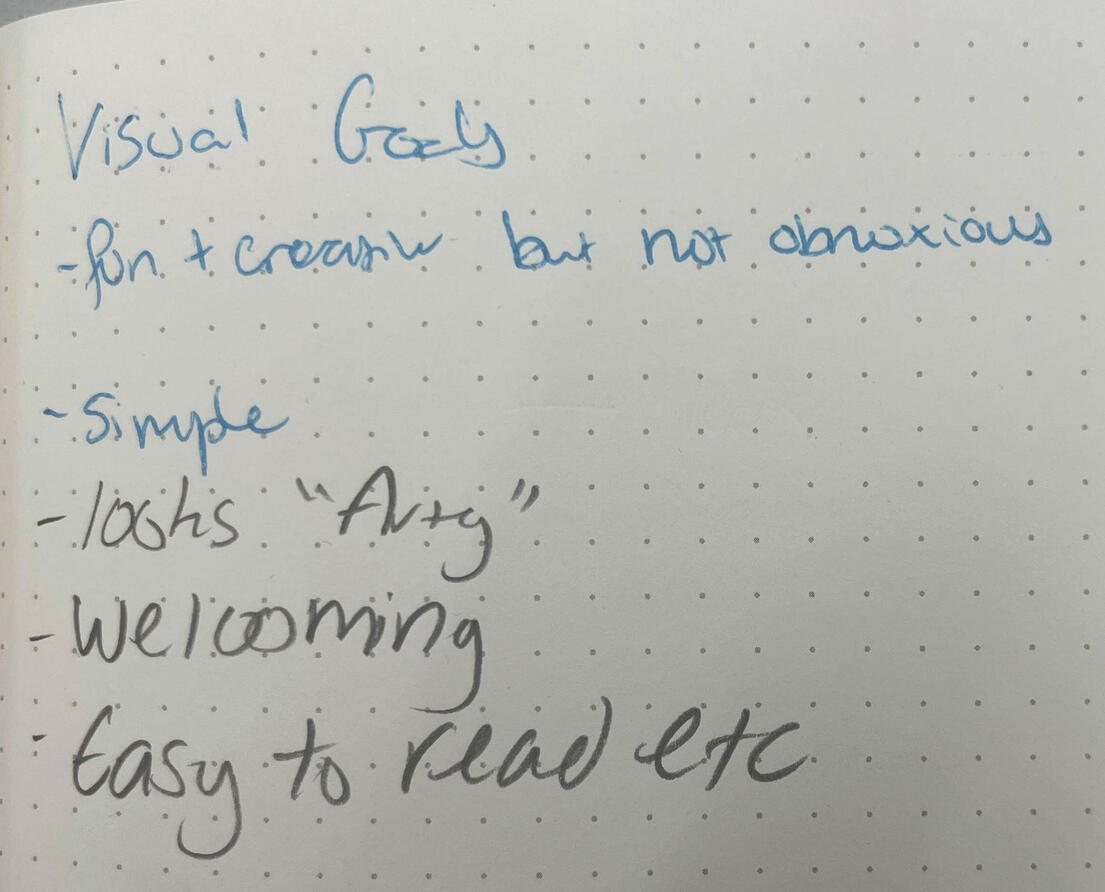 Visual Goals
- fun + creative but not obnoxious
- Simple
- looks "Arty"
- Welcoming
- Easy to read etc